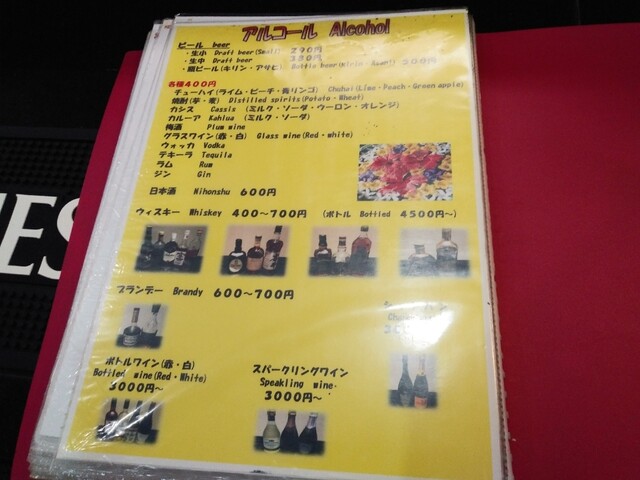 アルコール Alcohol
ビール beer
・生小 Draft beer(Small) 290円
・生中 Draft beer 380円
・瓶ビール(キリン・アサヒ) Bottle beer(Kirin・Asahi) 500円
各種400円
チューハイ(ライム・ピーチ・青リンゴ) Chuhai(Lime・Peach・Green apple)
焼酎(芋・麦) Distilled spirits(Potato・Wheat)
カシス Cassis (ミルク・ソーダ・ウーロン・オレンジ)
カルーア Kahlua (ミルク・ソーダ)
梅酒 Plum wine
グラスワイン(赤・白) Glass wine(Red・white)
ウォッカ Vodka
テキーラ Tequila
ラム Rum
ジン Gin
日本酒 Nihonshu 600円
ウィスキー Whiskey 400～700円 (ボトル Bottled 4500円～)
ブランデー Brandy 600～700円
ボトルワイン(赤・白)
Bottled wine(Red・White)
3000円～
スパークリングワイン
Speakling wine・
3000円～
ES